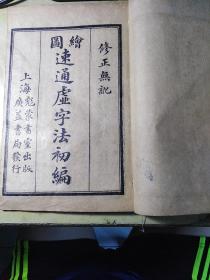 修正無訛
繪圖
速通虛字法初編
上海彪蒙書室出版
廣益書局發行